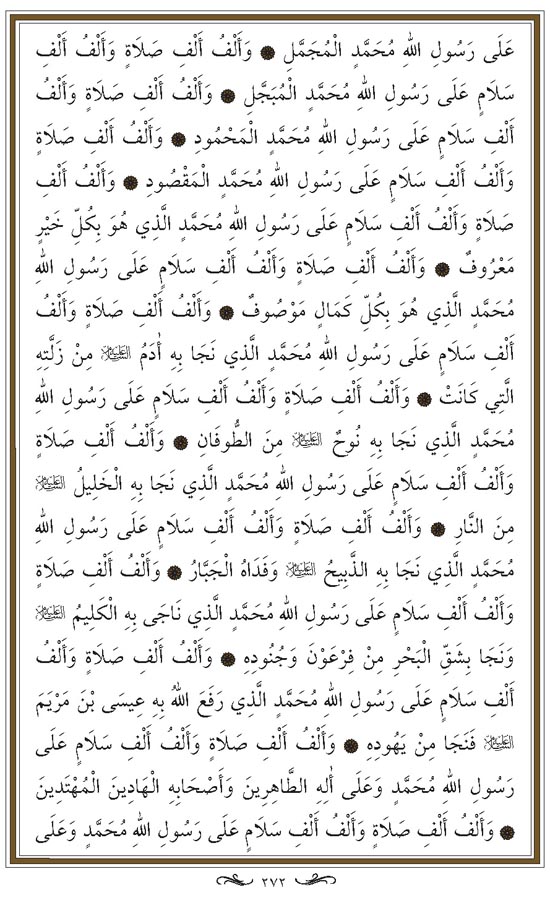 عَلَى رَسُولِ اللهِ مُحَمَّدٍ الْمُجَمَّلِ ۞ وَأَلْفُ أَلْفِ صَلَاةٍ وَأَلْفُ أَلْفِ
سَلَامٍ عَلَى رَسُولِ اللهِ مُحَمَّدٍ الْمُبَجَّلِ ۞ وَأَلْفُ أَلْفِ صَلَاةٍ وَأَلْفُ
أَلْفِ سَلَامٍ عَلَى رَسُولِ اللهِ مُحَمَّدٍ الْمَحْمُودِ ۞ وَأَلْفُ أَلْفِ صَلَاةٍ
وَأَلْفُ أَلْفِ سَلَامٍ عَلَى رَسُولِ اللهِ مُحَمَّدٍ الْمَقْصُودِ ۞ وَأَلْفُ أَلْفِ
صَلَاةٍ وَأَلْفُ أَلْفِ سَلَامٍ عَلَى رَسُولِ اللهِ مُحَمَّدٍ الَّذِي هُوَ بِكُلِّ خَيْرٍ
مَعْرُوفٌ ۞ وَأَلْفُ أَلْفِ صَلَاةٍ وَأَلْفُ أَلْفِ سَلَامٍ عَلَى رَسُولِ اللهِ
مُحَمَّدٍ الَّذِي هُوَ بِكُلِّ كَمَالٍ مَوْصُوفٌ ۞ وَأَلْفُ أَلْفِ صَلَاةٍ وَأَلْفُ
أَلْفِ سَلَامٍ عَلَى رَسُولِ اللهِ مُحَمَّدٍ الَّذِي نَجَا بِهِ أٰدَمُ عَلَيْهِ السَّلَام مِنْ زَلَّتِهِ
الَّتِي كَانَتْ ۞ وَأَلْفُ أَلْفِ صَلَاةٍ وَأَلْفُ أَلْفِ سَلَامٍ عَلَى رَسُولِ اللهِ
مُحَمَّدٍ الَّذِي نَجَا بِهِ نُوحٌ عَلَيْهِ السَّلَام مِنَ الطُّوفَانِ ۞ وَأَلْفُ أَلْفِ صَلَاةٍ
وَأَلْفُ أَلْفِ سَلَامٍ عَلَى رَسُولِ اللهِ مُحَمَّدٍ الَّذِي نَجَا بِهِ الْخَلِيلُ عَلَيْهِ السَّلَام
مِنَ النَّارِ ۞ وَأَلْفُ أَلْفِ صَلَاةٍ وَأَلْفُ أَلْفِ سَلَامٍ عَلَى رَسُولِ اللهِ
مُحَمَّدٍ الَّذِي نَجَا بِهِ الذَّبِيحُ عَلَيْهِ السَّلَام وَفَدَاهُ الْجَبَّارُ ۞ وَأَلْفُ أَلْفِ صَلَاةٍ
وَأَلْفُ أَلْفِ سَلَامٍ عَلَى رَسُولِ اللهِ مُحَمَّدٍ الَّذِي نَاجَى بِهِ الْكَلِيمُ عَلَيْهِ السَّلَام
وَنَجَا بِشَقِّ الْبَحْرِ مِنْ فِرْعَوْنَ وَجُنُودِهِ ۞ وَأَلْفُ أَلْفِ صَلَاةٍ وَأَلْفُ
أَلْفِ سَلَامٍ عَلَى رَسُولِ اللهِ مُحَمَّدٍ الَّذِي رَفَعَ اللهُ بِهِ عِيسَى بْنَ مَرْيَمَ
عَلَيْهِ السَّلَام فَنَجَا مِنْ يَهُودِهِ ۞ وَأَلْفُ أَلْفِ صَلَاةٍ وَأَلْفُ أَلْفِ سَلَامٍ عَلَى
رَسُولِ اللهِ مُحَمَّدٍ وَعَلَى أٰلِهِ الطَّاهِرِينَ وَأَصْحَابِهِ الْهَادِينَ الْمُهْتَدِينَ
۞ وَأَلْفُ أَلْفِ صَلَاةٍ وَأَلْفُ أَلْفِ سَلَامٍ عَلَى رَسُولِ اللهِ مُحَمَّدٍ وَعَلَى
٢٧٢